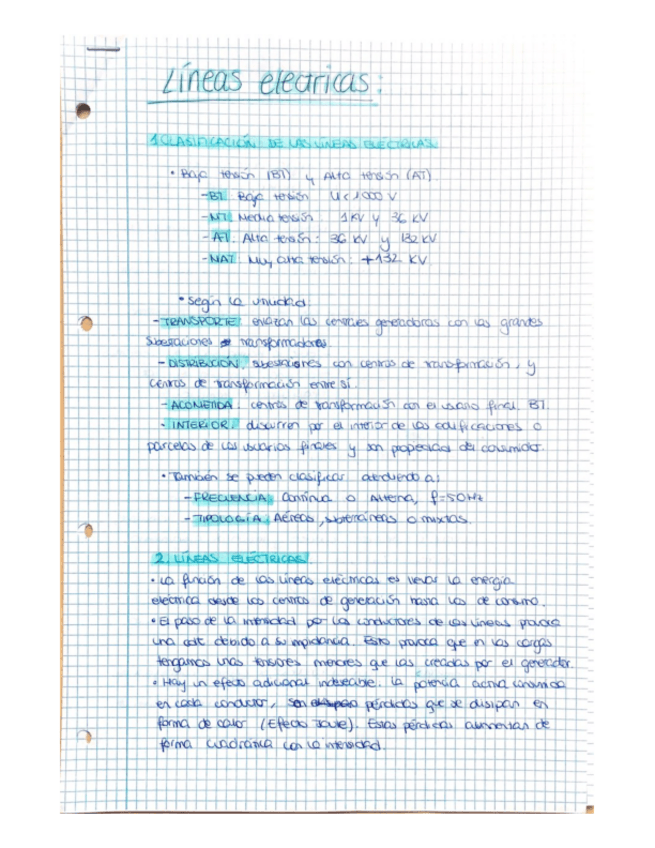 Líneas electricas:
1. CLASIFICACIÓN DE LAS LINEAS ELECTRICAS
• Baja tensión (BT) y Alta tensión (AT).
- BT. Baja tensión U < 1000 V
- MT. Media tensión: 1KV y 36 KV
- AT. Alta tensión: 36 KV y 132 KV
- MAT. Muy alta tensión: +132 KV.
• Según la unuidad:
- TRANSPORTE: enlazan las centrales generadoras con las grandes
subestaciones transformadoras
- DISTRIBUCIÓN: subestaciones con centros de transformación, y
centros de transformación entre sí.
- ACOMETIDA: centros de transformación con el usuario final. BT.
- INTERIOR: discurren por el interior de las edificaciones o
parcelas de los usuarios finales y son propiedad del consumidor.
• También se pueden clasificar atendiendo a:
- FRECUENCIA: Continua o Alterna, f=50Hz
- TIPOLOGÍA: Aéreas, subterráneas o mixtas.
2. LÍNEAS ELÉCTRICAS
• La función de las líneas eléctricas es llevar la energía
eléctrica desde los centros de generación hasta los de consumo.
• El paso de la intensidad por los conductores de las líneas provoca
una cdt debido a su impedancia. Esto provoca que en las cargas
tengamos unas tensiones menores que las creadas por el generador.
• Hay un efecto adicional indeseable. La potencia activa consumida
en cada conductor, son pérdidas que se disipan en
forma de calor (Efecto Joule). Estas pérdidas aumentan de
forma cuadratica con la intensidad.